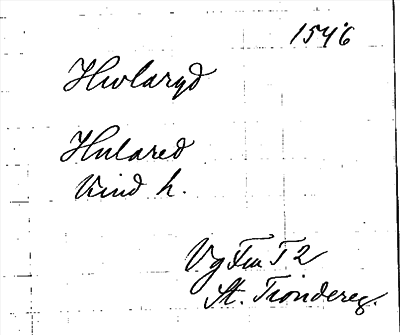 1546
Hwlaryd
Hulared
Kind h.
Vg Fru T 2
St. Tiondereg.